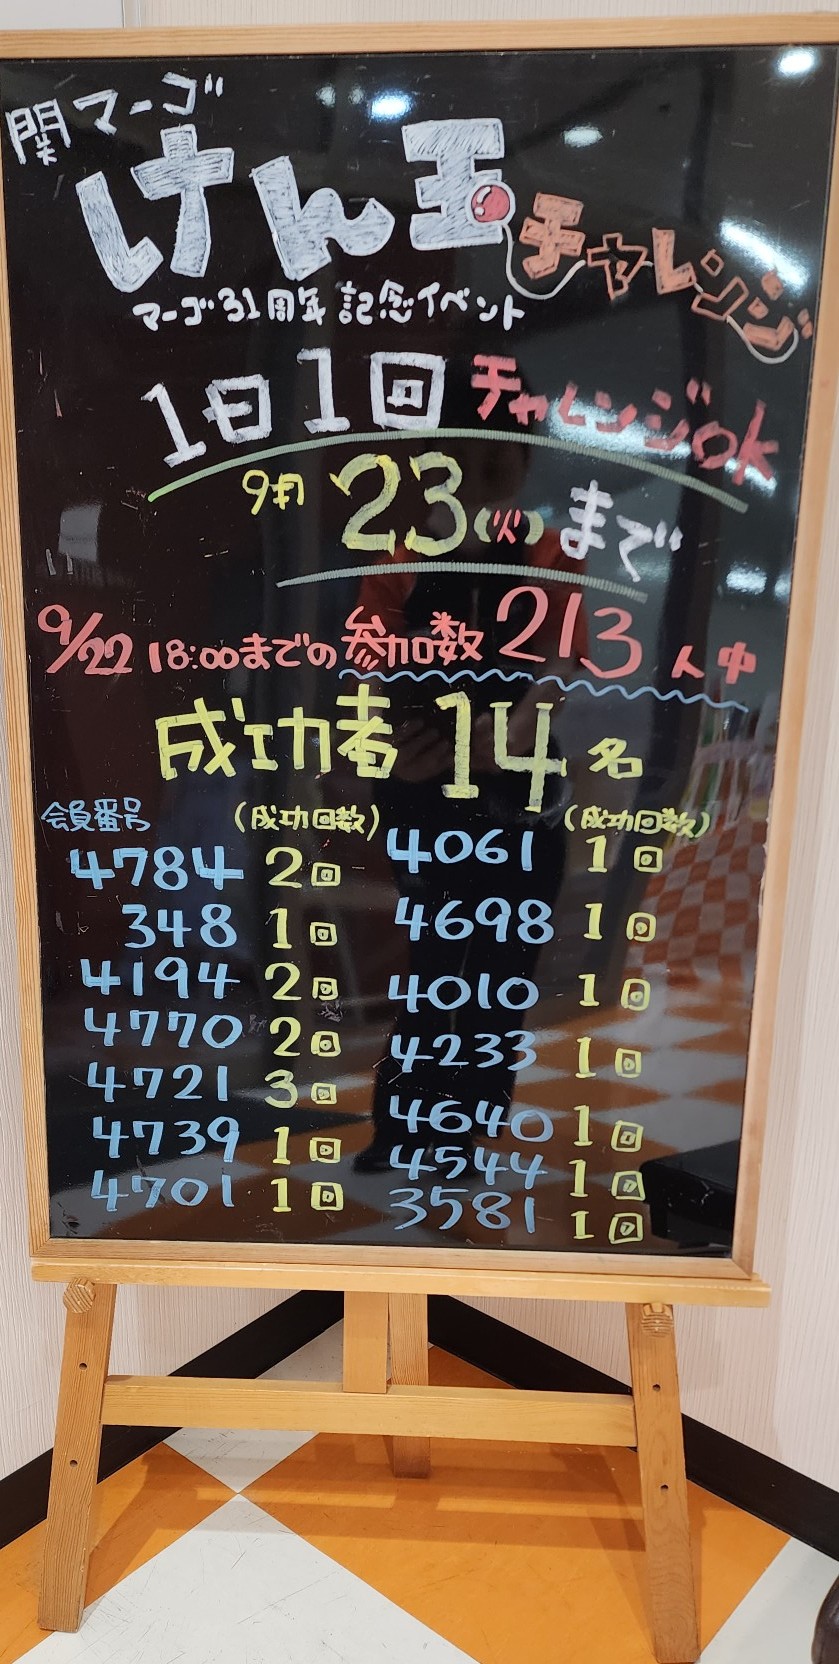 関マーゴ
けん玉チャレンジ
マーゴ31周年記念イベント
1日1回チャレンジOK
9月23(火)まで
9/22 18:00までの参加数213人中
成功者14名
会員番号 (成功回数) (成功回数)
4784 2回 4061 1回
348 1回 4698 1回
4194 2回 4010 1回
4770 2回 4233 1回
4721 3回 4640 1回
4739 1回 4544 1回
4701 1回 3581 1回